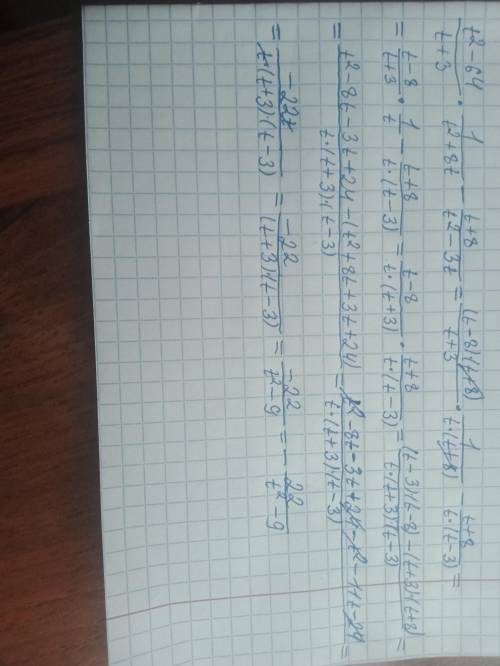 t²-64/t+3 · 1/t²+8t - t+8/t²-3t = (t-8)(t+8)/t+3 · 1/t·(t+8) - t+8/t·(t-3) =
= t-8/t+3 · 1/t - t+8/t·(t-3) = t-8/t·(t+3) · t+8/t·(t-3) = (t-3)(t-8)-(t+3)(t+8)/t·(t+3)(t-3) =
= t²-8t-3t+24-(t²+8t+3t+24)/t·(t+3)(t-3) = t²-8t-3t+24-t²-11t-24/t·(t+3)(t-3) =
= -22t/t·(t+3)·(t-3) = -22/(t+3)(t-3) = -22/t²-9 = -22/t²-9